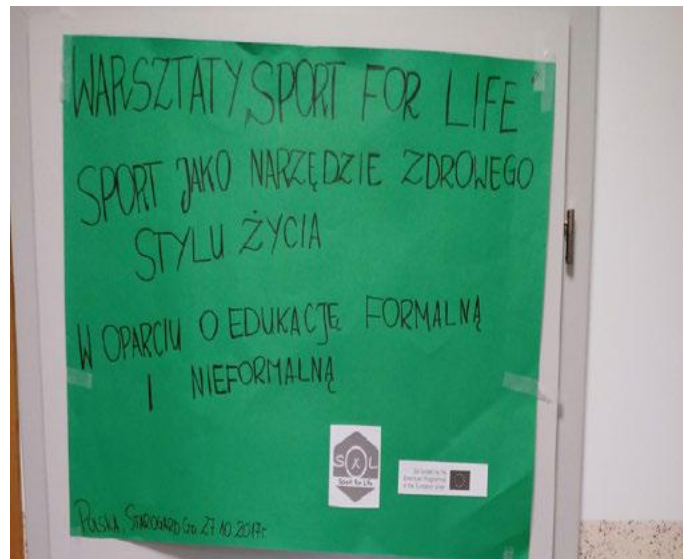 WARSZTATY „SPORT FOR LIFE"
SPORT JAKO NARZĘDZIE ZDROWEGO
STYLU ŻYCIA
W OPARCIU O EDUKACJĘ FORMALNĄ
I NIEFORMALNĄ
S X L
Sport for Life
Co-funded by the
Erasmus+ Programme
of the European Union
POLSKA, STAROGARD GD. 27.10.2017r.